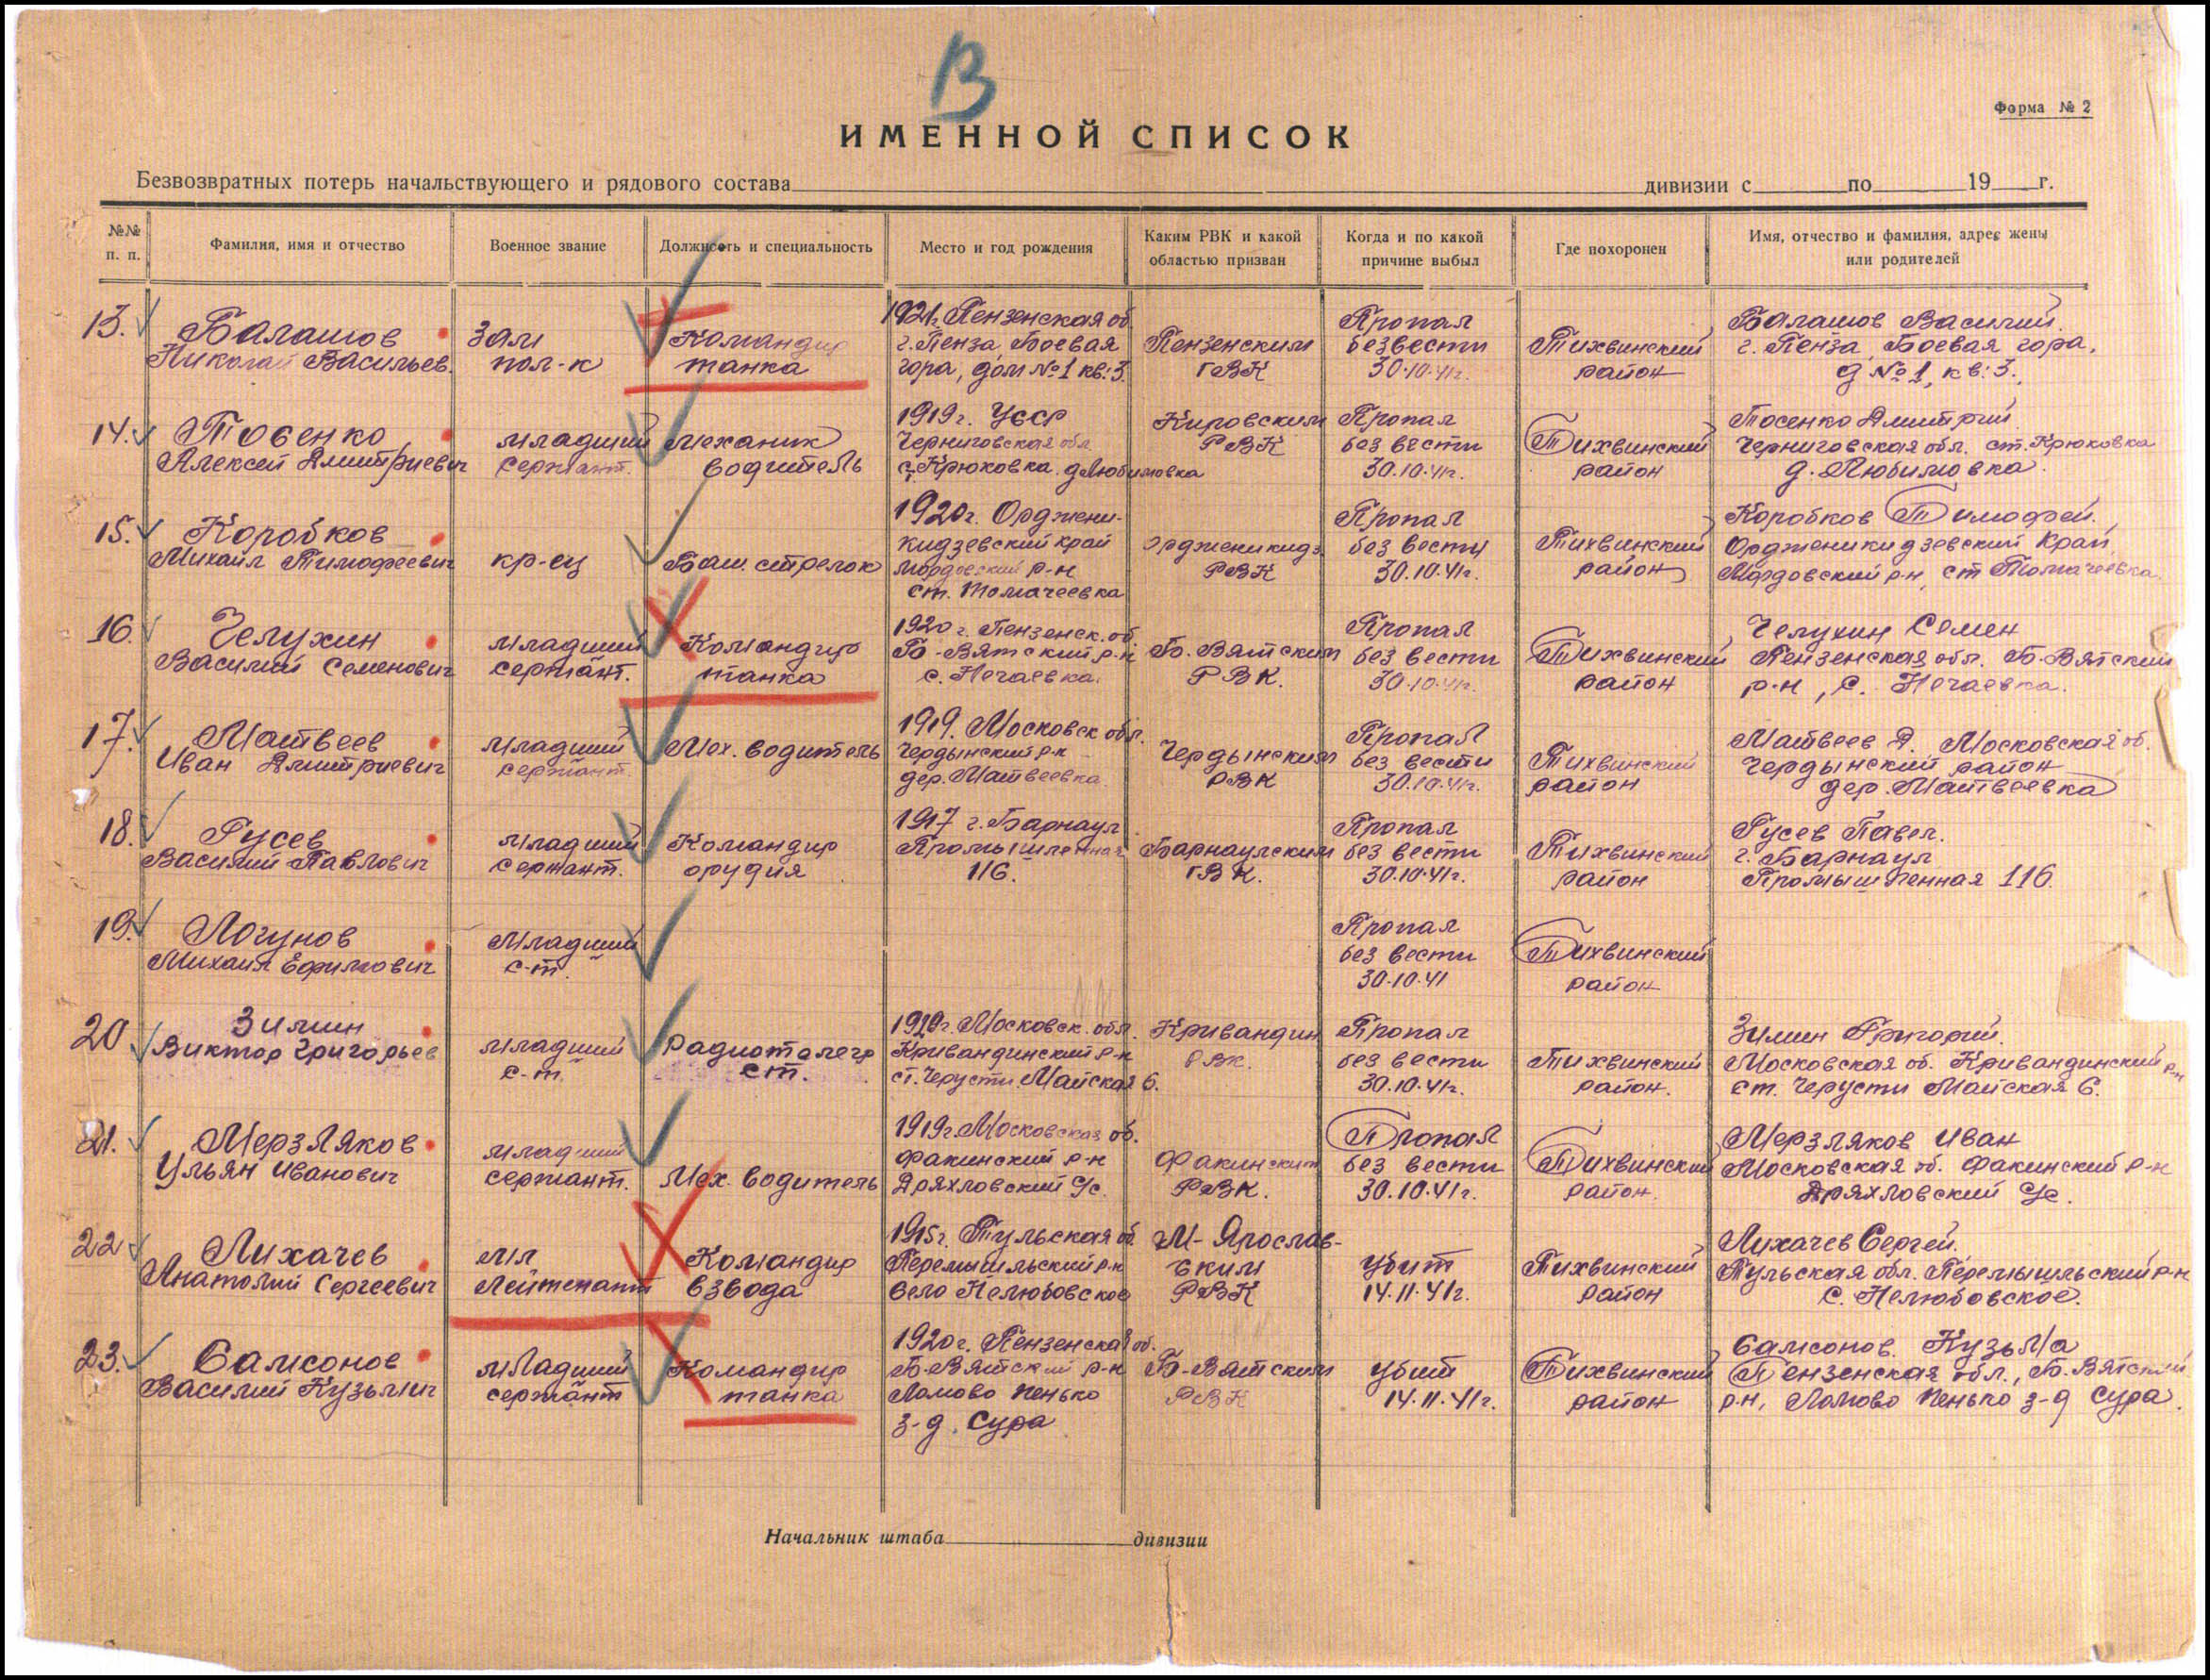 В
Форма № 2
ИМЕННОЙ СПИСОК
Безвозвратных потерь начальствующего и рядового состава дивизии с по 19 г.
№№ п. п.
Фамилия, имя и отчество
Военное звание
Должность и специальность
Место и год рождения
Каким РВК и какой областью призван
Когда и по какой причине выбыл
Где похоронен
Имя, отчество и фамилия, адрес жены или родителей
13.
Балашов
Николай Васильев.
Зам
пол-к
Командир
танка
1921г. Пензенская об.
г. Пенза Боевая
гора, дом №1 кв: 3.
Пензенским
ГВК
Пропал
безвести
30.10.41г.
Тихвинский
район
Балашов Василий.
г. Пенза, Боевая гора,
д №1, кв: 3.
14.
Тосенко
Алексей Дмитриевич
младший
сержант.
механик
водитель
1919г. УССР
Черниговская обл.
с. Крюковка д Любимовка
Кировским
РВК
Пропал
без вести
30.10.41г.
Тихвинский
район
Тосенко Дмитрий
Черниговская обл. ст. Крюковка
д. Любимовка.
15.
Коробков
Михаил Тимофеевич
кр-ец
Баш. стрелок
1920г. Орджени-
кидзевский край
Мордовский р-н
ст. Толмачеевка
Ордженикидз.
РВК
Пропал
без вести
30.10.41г.
Тихвинский
район
Коробков Тимофей.
Ордженикидзевский Край
Мордовский р-н, ст Толмачеевка.
16.
Челухин
Василий Семенович
младший
сержант.
Командир
танка
1920г. Пензенск. об.
Б-Вятский р-н
с. Нечаевка.
Б. Вятским
РВК.
Пропал
без вести
30.10.41г.
Тихвинский
район
Челухин Семен
Пензенская обл. Б-Вятский
р-н, с. Нечаевка.
17.
Матвеев
Иван Дмитриевич
младший
сержант.
Мех. водитель
1919. Московск обл.
Чердынский р-н
дер. Матвеевка
Чердынским
РВК
Пропал
без вести
30.10.41г.
Тихвинский
район
Матвеев Д. Московская об.
Чердынский район
дер. Матвеевка
18.
Гусев
Василий Павлович
младший
сержант.
Командир
орудия
1917 г. Барнаул
Промышленная
116.
Барнаулским
ГВК.
Пропал
без вести
30.10.41г.
Тихвинский
район
Гусев Павел.
г. Барнаул
Промышленная 116.
19.
Логунов
Михаил Ефимович
Младший
с-т.
Пропал
без вести
30.10.41
Тихвинский
район
20
Зимин
Виктор Григорьев
младший
с-т.
Радиотелегр
ст.
1919г. Московск. обл.
Кривандинский р-н
ст. Черусти Майская 6.
Кривандин
РВК.
Пропал
без вести
30.10.41г.
Тихвинский
район.
Зимин Григорий.
Московская об. Кривандинский р-н
ст. Черусти Майская 6.
21.
Мерзляков
Ульян Иванович
младший
сержант.
Мех. водитель
1919г. Московская об.
Факинский р-н
Дряхловский с/с.
Факинским
РВК.
Пропал
без вести
30.10.41г.
Тихвинский
район.
Мерзляков Иван
Московская об. Факинский р-н
Дряхловский с/с.
22
Лихачев
Анатолий Сергеевич
мл
Лейтенант
Командир
взвода
1915г. Тульская об.
Перемышльский р-н
село Нелюбовское
М-Ярослав-
ским
РВК
Убит
14.11.41г.
Тихвинский
район
Лихачев Сергей.
Тульская обл. Перемышльский р-н
с. Нелюбовское.
23.
Самсонов
Василий Кузьмич
младший
сержант
Командир
танка
1920г. Пензенская об.
Б-Вятский р-н
Ломово Пенько
з-д. Сура
Б-Вятским
РВК
Убит
14.11.41г.
Тихвинский
район
Самсонов. Кузьма
Пензенская обл., Б-Вятский
р-н, Ломово Пенько з-д Сура.
Начальник штаба дивизии